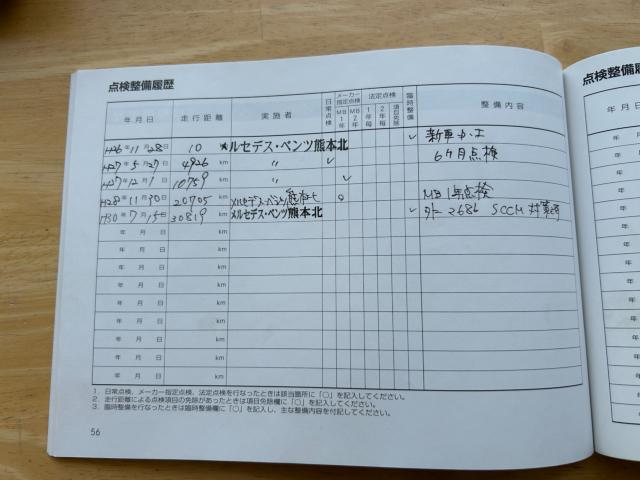 点検整備履歴
年月日 走行距離 実施者 日常点検 メーカー指定点検 MB1年 MB2年 法定点検 1年毎 2年毎 項目免除 臨時整備 整備内容
H26年11月28日 10 km メルセデス・ベンツ熊本北 ✓ 新車
H27年5月27日 4926 km 〃 ✓ 6ヶ月点検
H27年12月1日 10759 km 〃 ✓
H28年11月30日 20705 km メルセデス・ベンツ熊本北 ○ MB 1年点検
H30年7月15日 30819 km メルセデス・ベンツ熊本北 ✓ 2686 SCCM
年 月 日 km
年 月 日 km
年 月 日 km
年 月 日 km
年 月 日 km
年 月 日 km
年 月 日 km
年 月 日 km
1．日常点検、メーカー指定点検、法定点検を行なったときは該当箇所に「○」を記入してください。
2．走行距離による点検項目の免除があったときは項目免除欄に「○」を記入してください。
3．臨時整備を行なったときは臨時整備欄に「○」を記入し、主な整備内容を付記してください。
56
点検整備履
年月
年
年
年
年
年
年
年
年
年
年
年
年